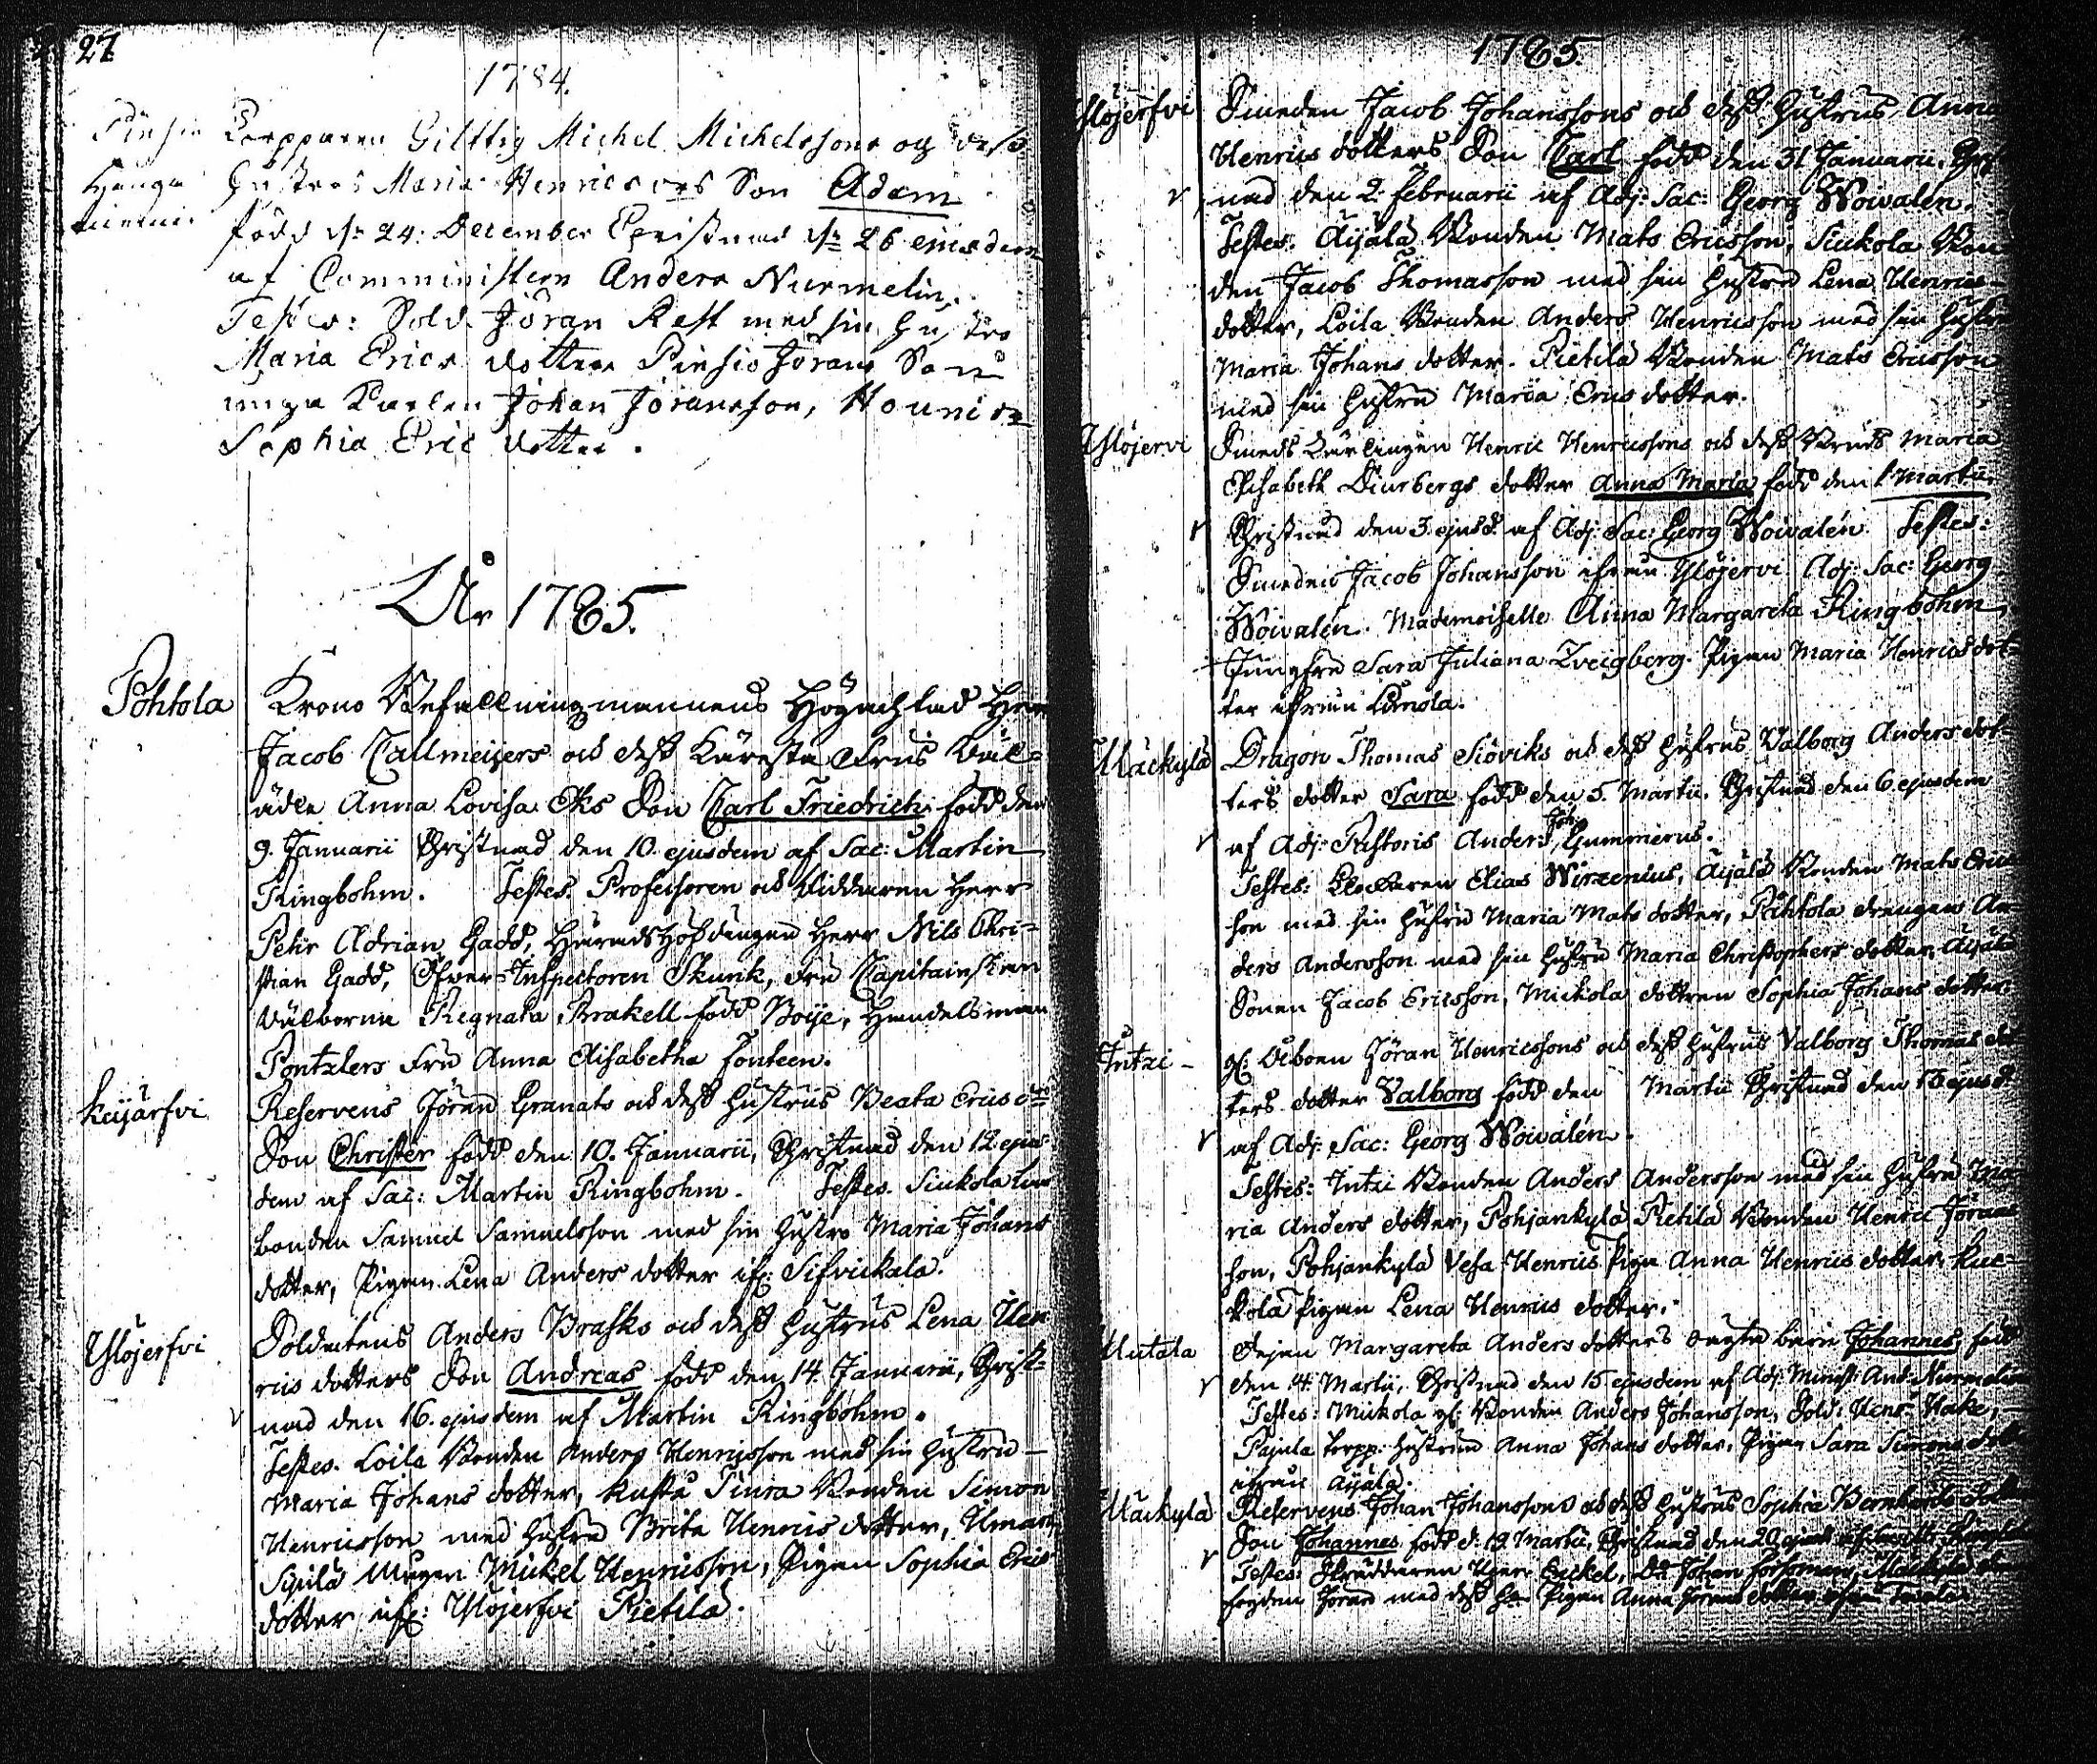 27
1784.
Pinsiö Torpparen Gilttig Michel Michelssons og dess
Hanga Hustrus Maria Henrics drs Son Adam
niemi. född dn 24. December Christnad dn 26 ejusdem
af Comministern Anders Nurmelin.
Testes: Sold. Jöran Rask med sin Hustro
Maria Erics dotter Pinsiö Jörans Son
unga Karlen Johan Jöransson, Hounion
Sophia Eric dotter.
År 1785.
Pohtola Krono Befallningsmannens Högachtad Herr
Jacob Callmeijers och dess Käresta Frus Väl=
ädle Anna Lovisa Eks Son Carl Friedrich född den
9. Januarii Christnad den 10. ejusdem af Sac: Martin
Ringbohm. Testes. Professoren och Riddaren Herr
Pehr Adrian Gadd, Häradshöfdingen Herr Nils Chri=
stian Gadd, Öfver-Inspectoren Skunk, Fru Capitainskan
Välborna Regnata Brakell född Boije, Handelsman
Pontzlers Fru Anna Elisabetha Fonteen.
Keijärfvi Reservens Jöran Granats och dess Hustrus Beata Erics drs
Son Christer född den 10. Januarii, Christnad den 12 ejus
dem af Sac: Martin Ringbohm. Testes. Siukola
bonden Samuel Samuelsson med sin Hustro Maria Johans
dotter, Pigan Lena Anders dotter if: Sifvickala.
Ylöjerfvi Soldatens Anders Brasks och dess Hustrus Lena Hen
rics dotters Son Andreas född den 14. Januarii, Christ=
nad den 16. ejusdem af Martin Ringbohm.
Testes. Loila Bonden Anders Henricsson med sin Hustru
Maria Johans dotter, Kusta Simon Bonden Simon
Henricsson med Hustru Brita Henrics dotter,
Sipilä Mågen Mickel Henricsson, Pigan Sophia Erics
dotter if: Ylöjerfvi Pietilä.
1785
Ylöjerfvi Smeden Jacob Johanssons och dess Hustrus Anna
Henrics dotters Son Carl född den 31 Januarii, Christ
nad den 2 Februarii af Adj: Sac: Georg Woivalén.
Testes. Äijälä Bonden Mats Ericsson, Siukola Bon
den Jacob Thomasson med sin Hustru Lena Henrics
dotter, Loila Bonden Anders Henricsson med sin Hustru
Maria Johans dotter. Pietilä Bonden Mats Ericsson
med sin Hustru Maria Erics dotter.
Ylöjervi Smeds Lärlingen Henric Henricssons och dess Bruds Maria
Elisabeth Diurbergs dotter Anna Maria född den 1 Martii.
Christnad den 3 ejusd. af Adj: Sac: Georg Woivalén. Testes:
Smeden Jacob Johansson ifrån Ylöjervi Adj: Sac: Georg
Woivalén. Mademoiselle Anna Margareta Ringbohm,
Jungfru Sara Juliana Zveigberg. Pigan Maria Henricsdot=
ter ifrån Lamola.
Mäckylä Dragon Thomas Siöviks och dess Hustrus Valborg Anders dot=
ters dotter Sara född den 5. Martii. Christnad den 6 ejusdem
af Adj: Pastoris Anders Joh: Gummerus.
Testes: Klockaren Elias Wirzenius, Äijälä Bonden Mats Erics
son med sin Hustru Maria Mats dotter, Pohtola drengen An
ders Andersson med sin Hustru Maria Christophers dotter, Äijälä
Sonen Jacob Ericsson, Mickola dottren Sophia Johans dotter.
Intzi gl: Åboen Jöran Henricssons och dess Hustrus Valborg Thomas dot
ters dotter Valborg född den Martii Christnad den 13 ejusd
af Adj: Sac: Georg Woivalén.
Testes: Intzi Bonden Anders Andersson med sin Hustru Ma
ria Anders dotter, Pohjankylä Pietilä Bonden Henric Jörans
son, Pohjankylä Vesa Henrics Piga Anna Henrics dotter, Kuc=
kola Pigan Lena Henrics dotter.
Mutala Pigan Margareta Anders dotters oägta barn Johannes, född
den 14. Martii, Christnad den 15 ejusdem af Adj: Minist: And: Nurmelin
Testes: Mickola gl: Bonden Anders Johansson, Sold: Henr: Hake,
Pajula torpp: Hustrun Anna Johans dotter, Pigan Sara Simons dotter
ifrån Äijälä.
Mäckylä Reservens Johan Johanssons och dess Hustrus Sophia Bernhards dotters
Son Johannes född d: 19 Martii, Christnad den 20 ejusd
Testes: Skräddaren Herr Eickel, Johan Forssman, Mäckylä
fogden Jöran med dess Hu Pigan Anna Jörans dotter ifrån